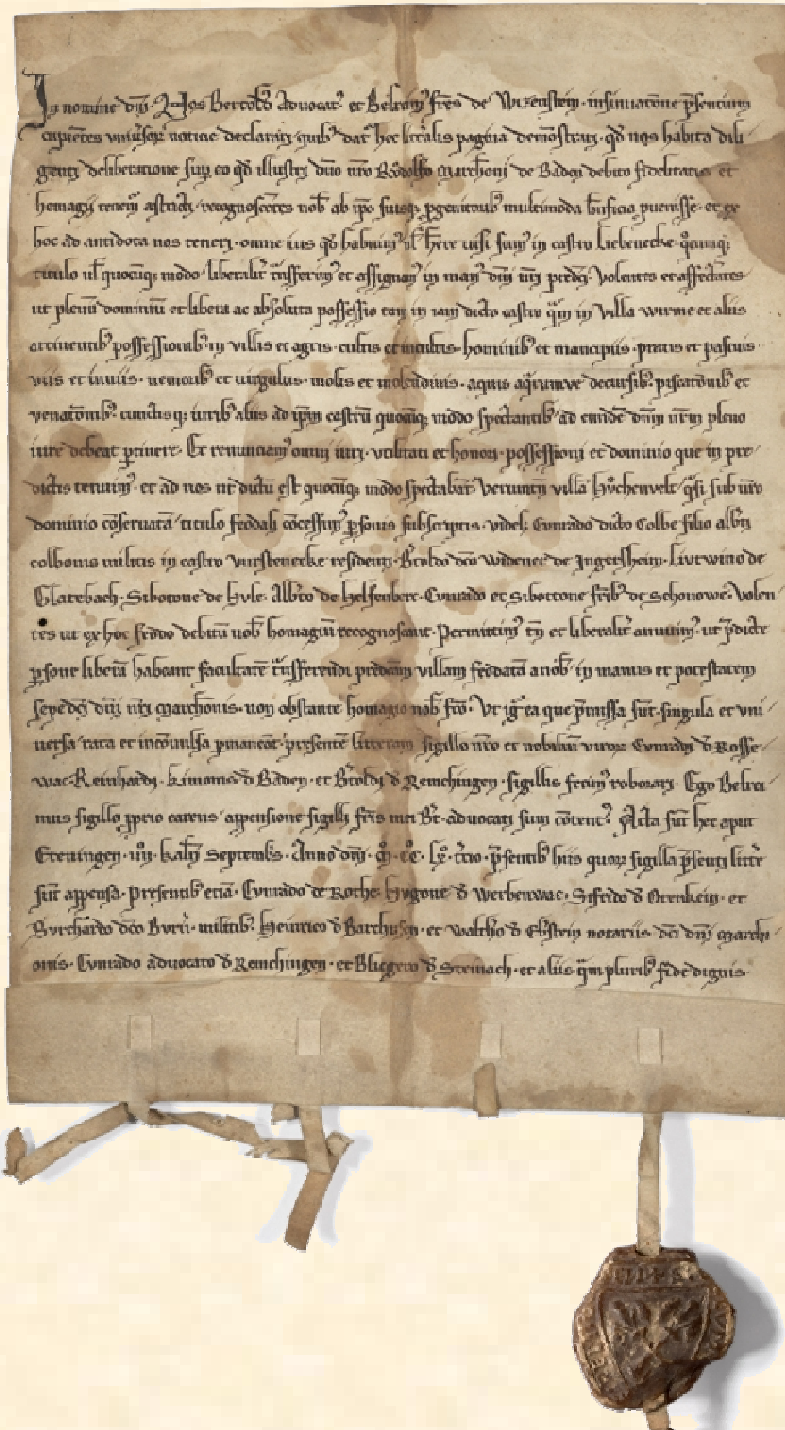 In nomine dnı. Nos Bertold᷒ Aduocat᷒ et Belreim᷒ fr̄es de Wizenstein. insinuatione p̄sentium
cupiētes vniu᷒sor᷒ notitie declarari. quib᷒ dat᷒ hec litt̄alis pagina demōstrari. qd̄ nos habita dili
genti deliberatione sup eo qd̄ illustri dn̄o nr̄o Rvdolfo Marchioni de Baden debito fidelitatis et
homagii tenem᷒ astricti. recognoscētes nob̄ ab ip̄o suisq; p̄genitorib᷒ multimoda b̄nficia puenisse. et ex
hoc ad antidota nos teneri. omne ius qd̄ habuim᷒ vl̄ h̄re visi sum᷒ in castro Liebenecke. q̊cumq;
titulo vl̄ quocūq; modo. liberalit̄ t̄nsferim᷒ et assignam᷒ in man᷒ dn̄i nr̄i predc̄i. volentes et affectātes
ut plenū dominiū et libera ac absoluta possessio tam in iam dicto castro q̄m in villa wirme et aliis
attinentib᷒ possessionib᷒ in villis et agris. cultis et incultis. hominib᷒ et mancipiis. pratis et pascuis
viis et inuiis. nemorib᷒ et virgultis. molis et molendinis. aquis aq̄rumve decursib᷒. piscatōnib᷒ et
venatōnib᷒. cunctisq; iurib᷒ aliis ad ip̄m castrū quocūq; modo spectantib᷒ ad eundē dn̄m nr̄m pleno
iure debeat p̄tinere. Et renunciam᷒ omni iuri. vtilitati et honori. possessioni et dominio que in pre
dictis tenuim᷒. et ad nos ut dictū est quocūq; modo spectabāt. Veruntn̄ villā Hvchenvelt. q̄si sub nr̄o
dominio cōseruatā. titulo feodali cōcessim᷒ p̄sonis subscriptis. videl; Cvnrado dicto Colbe filio alb̄ti
colbonis militis in castro vurstenecke residenti. B̄toldo dc̄o widener de Ingersheim. Livtwino de
Glatebach. Sibotone de Hvle. Alb̄to de Helfenberc. Cvnrado et Sibottone fr̄ib᷒ de Schonowe. Volen
tes ut ex hoc feodo debitū nob̄ homagiū recognoscant. Permittim᷒ tn̄ et liberalit̄ annuim᷒. ut p̄dicte
p̄sone liberā habeant facultatē t̄nsferendi predc̄am villam feodatā a nob̄. in manus et potestatem
sepedc̄i dn̄i nr̄i Marchionis. non obstante homagio nob̄ fc̄o. Vt igr̄ ea que p̄missa sūt. singula et vni
uersa rata et incōuulsa p̄maneāt. presentē litteram sigillo nr̄o et nobiliū viror᷒ Cvnradi d̄ Rosse
wac. Reinhardi. kimonis d̄ Baden. et B̄toldi d̄ Remchingen. sigillis fecim᷒ roborari. Ego Belrei
mus sigillo p̄prio carens appensione sigilli fr̄is mei B̄t. aduocati sum cōtent᷒. Acta sūt hec aput
Eteningen. iiij. kaln̄ Septemb̄s. Anno dn̄i. M̊. CC̊. Lx̊. tc̄io. p̄sentib᷒ hiis quor᷒ sigilla p̄senti litt̄e
sūt appensa. presentib᷒ etiā. Cvnrado de Roche. Hvgone d̄ Werbenwac. Sifrido d̄ Otenhein. et
Bvrchardo dc̄o Bvrr᷒. militib᷒. Heinrico d̄ Barchusen. et walth̄o d̄ Ebstein notariis dc̄i dn̄i Marchi
onis. Cvnrado aduocato d̄ Remchingen. et Bliggero d̄ Steinach. et aliis q̄m plurib᷒ fide dignis